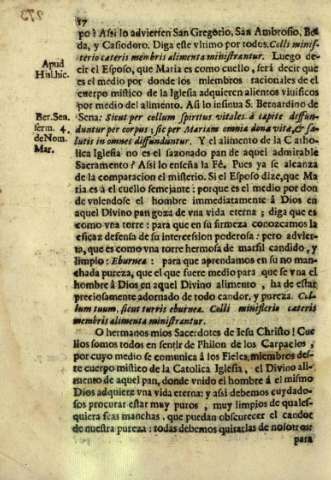 87
po? Assi lo advierten San Gregorio, San Ambrosio, Be-
da, y Casiodoro. Diga este vltimo por todos. Colli minis-
terio cateris membris alimenta ministrantur. Luego de-
Apud
Hul.hic.
cir el Esposo, que Maria es como cuello, serà decir que
es el medio por donde los miembros racionales de el
cuerpo mistico de la Iglesia adquieren alientos viuificos
por medio del alimento. Assi lo insinua S. Bernardino de
Ber. Sen.
serm. 4.
de Nom.
Mar.
Sena: Sicut per collum spiritus vitales à capite diffun-
duntur per corpus; sic per Mariam omnia dona vita, & sa-
lutis in omnes diffunduntur. Y el alimento de la Catho-
lica Iglesia no es el sazonado pan de aquel admirable
Sacramento? Assi lo enseña la Fè. Pues ya se alcanza
de la comparacion el misterio. Si el Esposo dize, que Ma
ria es à el cuello semejante: porque es el medio por don
de volendose el hombre immediatamente à Dios en
aquel Divino pan goza de vna vida eterna; diga que es
como vna torre: para que en su firmeza conozcamos la
eficaz defensa de su intercession poderosa: pero advier-
to, que es como vna torre hermosa de marfil candido, y
limpio: Eburnea: para que aprendamos en su no man-
chada pureza, que el que fuere medio para que se vna el
hombre à Dios en aquel Divino alimento, ha de estar
preciosamente adornado de todo candor, y pureza. Col-
lum tuum, sicut turris eburnea. Colli ministerio cateris
membris alimenta ministrantur.
O hermanos mios Sacerdotes de Iesu Christo! Cue
llos somos todos en sentir de Philon de los Carpacios,
por cuyo medio se comunica à los Fieles, miembros des-
te cuerpo mistico de la Catolica Iglesia, el Divino ali-
mento de aquel pan, donde vnido el hombre à el mismo
Dios adquiere vna vida eterna: y assi debemos cuydado-
sos procurar estar muy puros, muy limpios de quales-
quiera feas manchas, que puedan obscurecer el candor
de nuestra pureza: todas debemos quitarlas de nosotros:
para